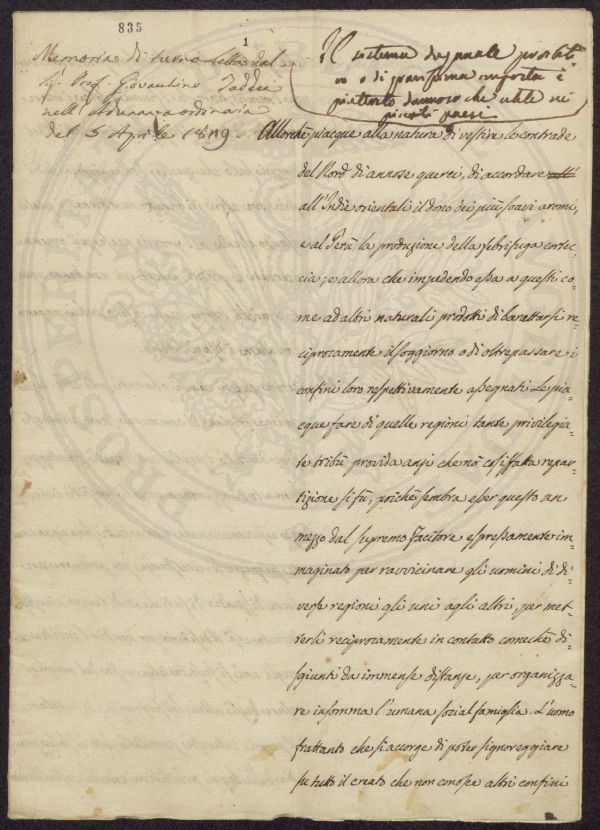 835
1
Memoria di turno letta dal
Sig. Prof. Giovacchino Taddei
nell'Adunanza ordinaria
del 5 Aprile 1819.
Il sistema doganale proibiti
vo o di gravissima importa è
piuttosto dannoso che utile nei
piccoli paesi
Allorchè piacque alla natura di vestire le contrade
del Nord di annose querci, di accordare
all'Indie orientali il dono dei più soavi aromi,
e al Perù la produzione della febrifuga cortec-
cia; e allora che impedendo essa a questi co-
me ad altri naturali prodotti di barattarsi re-
ciprocamente il soggiorno o di oltrepassare i
confini loro respettivamente assegnati le piac-
que fare di quelle regioni tante privilegia-
te tribù provida anzi che nò cosiffatta repar-
tizione si fù, poichè sembra esser questo un
mezzo dal supremo facitore espressamente im-
maginato per ravvicinare gli uomini di di-
verse regioni gli uni agli altri, per met-
terli reciprocamente in contatto comechè di-
sgiunti da immense distanze, per organizza-
re insomma l'umana social famiglia. L'uomo
frattanto che si accorge di poter signoreggiare
su tutto il creato che non conosce altri confini